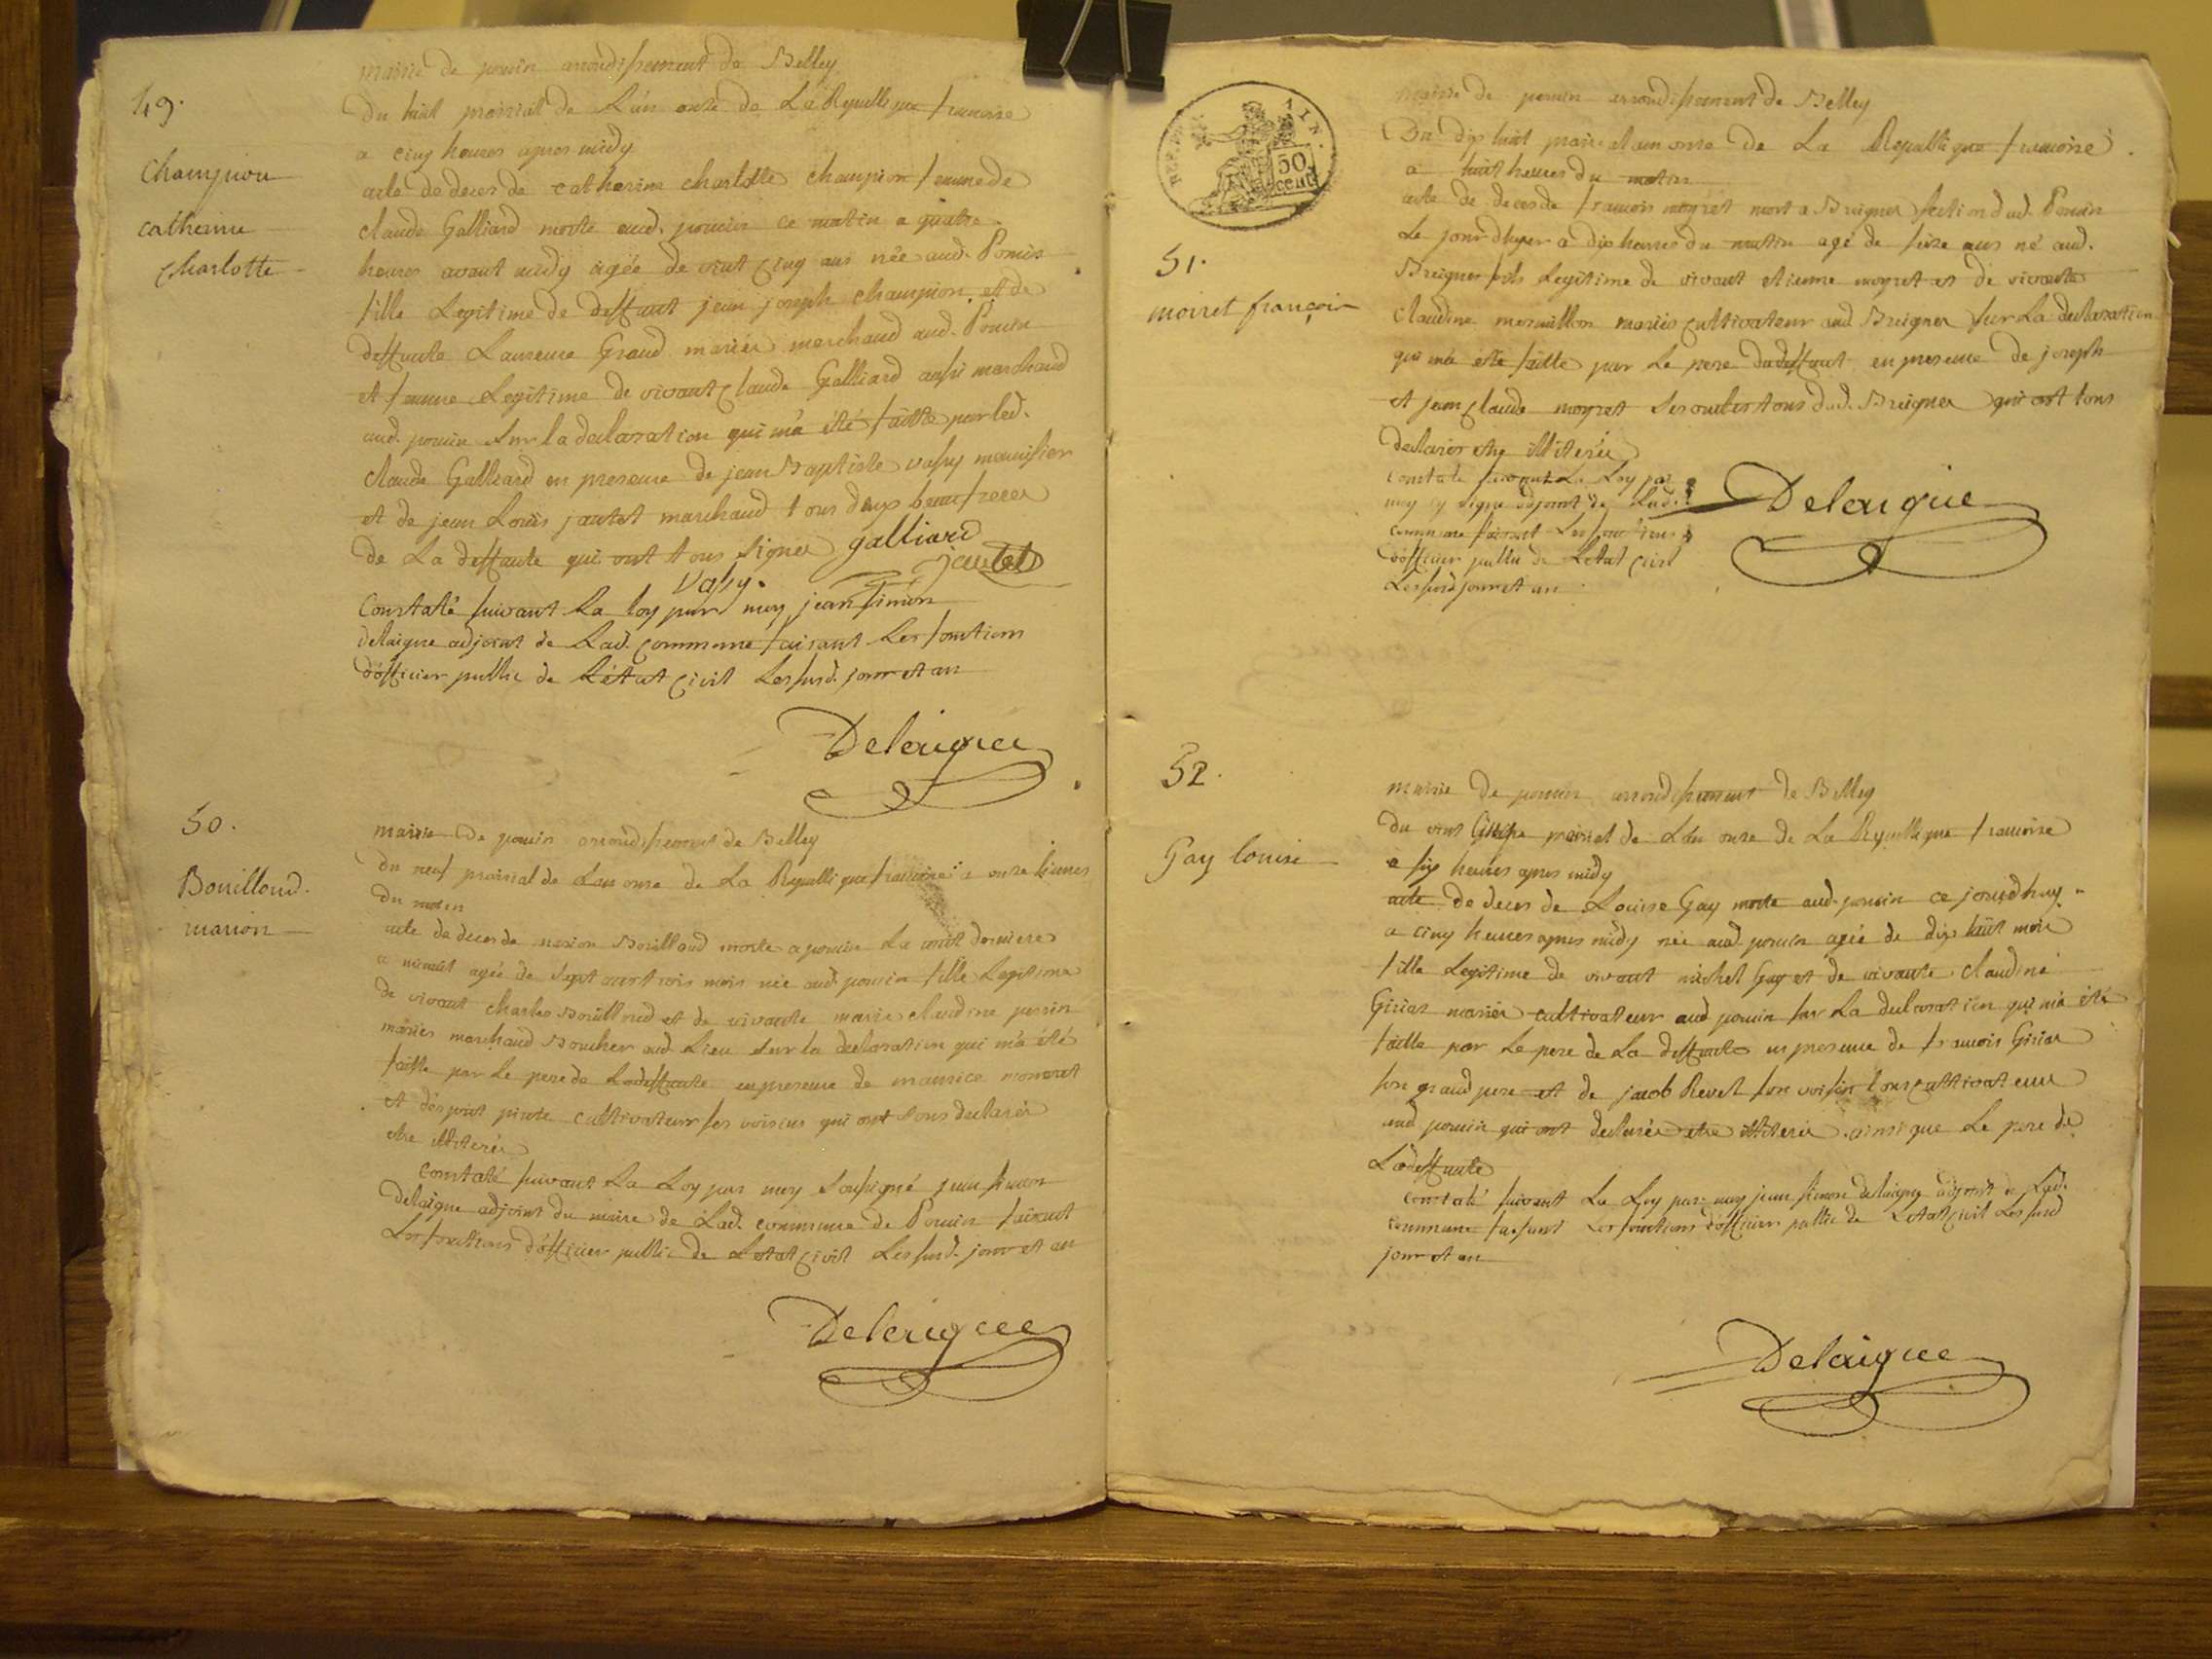 49.
Champion
catherine
charlotte
mairie de poncin arrondissement de Belley
Du huit prairial de L'an onze de La Republique francoise
a cinq heures apres midy
acte de deces de catherine charlotte champion femme de
claude Galliard morte aud. poncin ce matin a quatre
heures avant midy agée de vint cinq ans née aud. Poncin
fille Legitime de deffunt jean joseph champion et de
deffunte Laurence Graud mariés marchand aud. Poncin
et femme Legitime de vivant claude Galliard aussi marchand
aud. poncin sur la declaration qui m'a été faitte par led.
claude Galliard en presence de jean Baptiste vassy menuisier
et de jean Louis jautet marchand tous deux beaufreres
de La deffunte qui ont tous signer galliard
jautet
Vassy.
Constaté suivant La loy par moy jean simon
delaigue adjoint de Lad. commune faisant Les fonctions
d'officier public de L'état civil Les susd. jour et an
Delaigue
50.
Bouilloud.
marion
mairie de poncin arrondissement de Belley
du neuf prairial de Lan onze de La Republique francoise a onze heures
du matin
acte de deces de marion Bouilloud morte a poncin La nuit derniere
a minuit agée de sept ans trois mois née aud. poncin fille Legitime
de vivant charles Bouilloud et de vivante marie claudine perrin
mariés marchand Boucher aud. Lieu sur la declaration qui m'a été
faitte par Le pere de Ladeffunte en presence de maurice
et cultivateur ses voisins qui ont tous declarés
etre illiterés
Constaté suivant La Loy par moy soussigné jean simon
delaigue adjoint du maire de Lad. commune de Poncin faisant
Les fonctions d'officier public de Letat civil Les susd. jour et an
Delaigue
50
cent
51.
moiret françois
mairie de poncin arrondissement de Belley
Du dix huit prairial an onze de La Republique francoise
a huit heures du matin
acte de deces de francois moyret mort a Breignes section dud. Poncin
Le jour dhyer a dix heures du matin agé de seize ans né aud.
Breignes fils Legitime de vivant etienne moyret et de vivante
Claudine mermillon mariés cultivateur aud Breignes sur La declaration
qui m'a eté faitte par Le pere dudeffunt en presence de joseph
et jean claude moyret ses oncles tous dud. Breignes qui ont tous
declarés etre illiterés
Constaté suivant La Loy par
moy cy signé adjoint de Lad.
commune faisant Les fonctions
d'officier public de Letat civil
Les susd jour et an
Delaigue
52.
Gay louise
mairie de poncin arrondissement de Belley
du vint prairial de Lan onze de La Republique francoise
a six heures apres midy
acte de deces de Louise Gay morte aud. poncin ce jourdhuy
a cinq heures apres midy née aud. poncin agée de dix huit mois
fille Legitime de vivant michel Gay et de vivante claudine
Giriat mariés cultivateur aud poncin sur La declaration qui m'a été
faitte par Le pere de La deffunte en presence de francois Giriat
son grand pere et de jacob Revel son voisin tous cultivateurs
aud poncin qui ont declarés etre illiterés ainsi que Le pere de
Ladeffunte
Constaté suivant La Loy par moy jean simon delaigue adjoint de Lad.
commune faisant Les fonctions d'officier public de Letat civil Les susd
jour et an
Delaigue